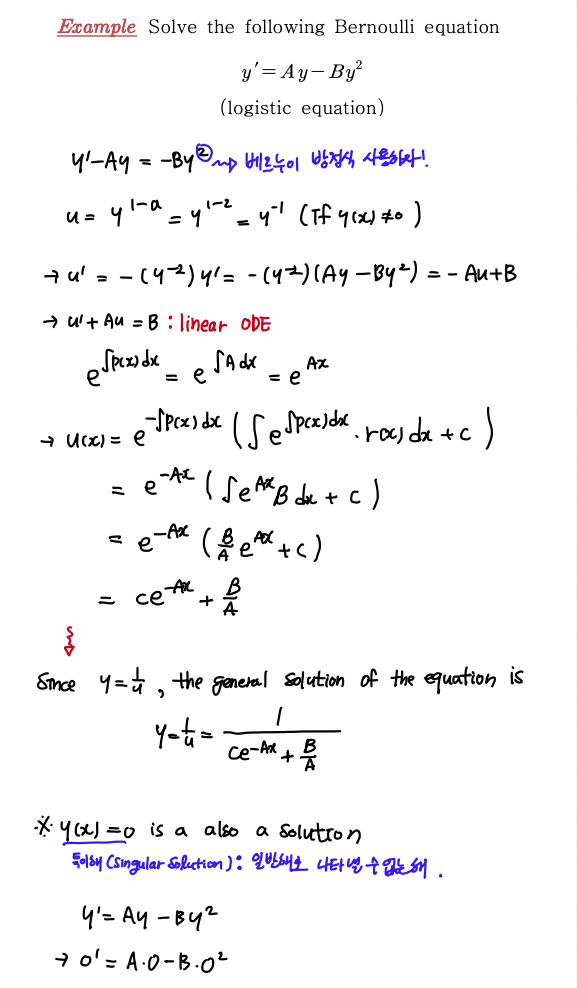 Example Solve the following Bernoulli equation
y′ = Ay − By²
(logistic equation)
y′−Ay = −By² ⇝ 베르누이 방정식 사용하자!
u = y^{1−a} = y^{1−2} = y^{−1} (If y(x) ≠ 0)
→ u′ = −(y^{−2})y′ = −(y^{−2})(Ay − By²) = −Au+B
→ u′+Au = B : linear ODE
e^{∫p(x)dx} = e^{∫A dx} = e^{Ax}
→ u(x) = e^{−∫p(x)dx} (∫e^{∫p(x)dx}·r(x)dx + c)
= e^{−Ax} (∫e^{Ax}B dx + c)
= e^{−Ax} (B/A e^{Ax} + c)
= ce^{−Ax} + B/A
Since y = 1/u, the general solution of the equation is
y = 1/u = 1/(ce^{−Ax} + B/A)
※ y(x) = 0 is a also a solution
특이해 (Singular Solution) : 일반해로 나타낼 수 없는 해.
y′ = Ay − By²
→ 0′ = A·0 − B·0²